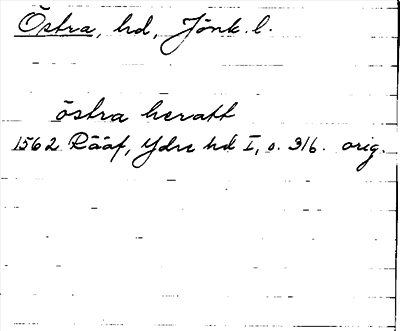 Östra, hd, Jönk. l.
östra heratt
1562 Rääf, Ydre hd I, s. 316. orig.